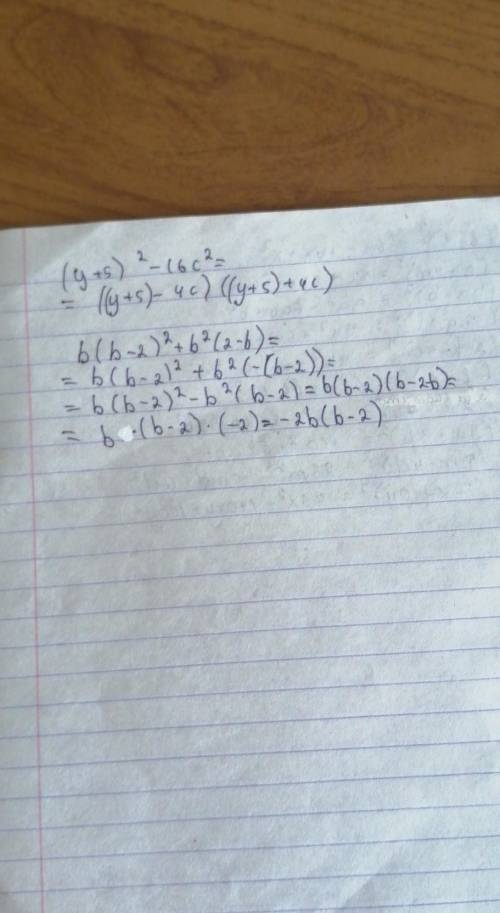 (y+5)²-16c²=
= ((y+5)-4c)((y+5)+4c)
b(b-2)²+b²(2-b)=
= b(b-2)²+b²(-(b-2))=
= b(b-2)²-b²(b-2)=b(b-2)(b-2-b)=
= b·(b-2)·(-2)=-2b(b-2)